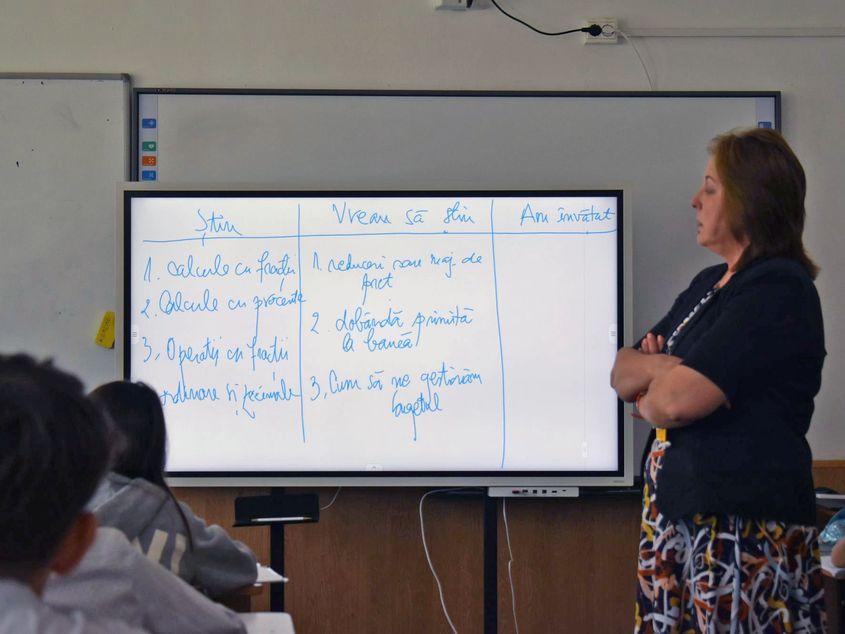 Știu
Vreau să știu
Am învătat
1. Calcule cu fracții
2. Calcule cu procente
3. Operații cu fracții
ordinare și zecimale
1. reduceri sau maj. de
preț
2. dobândă primită
la bancă
3. Cum să ne gestionăm
bugetul